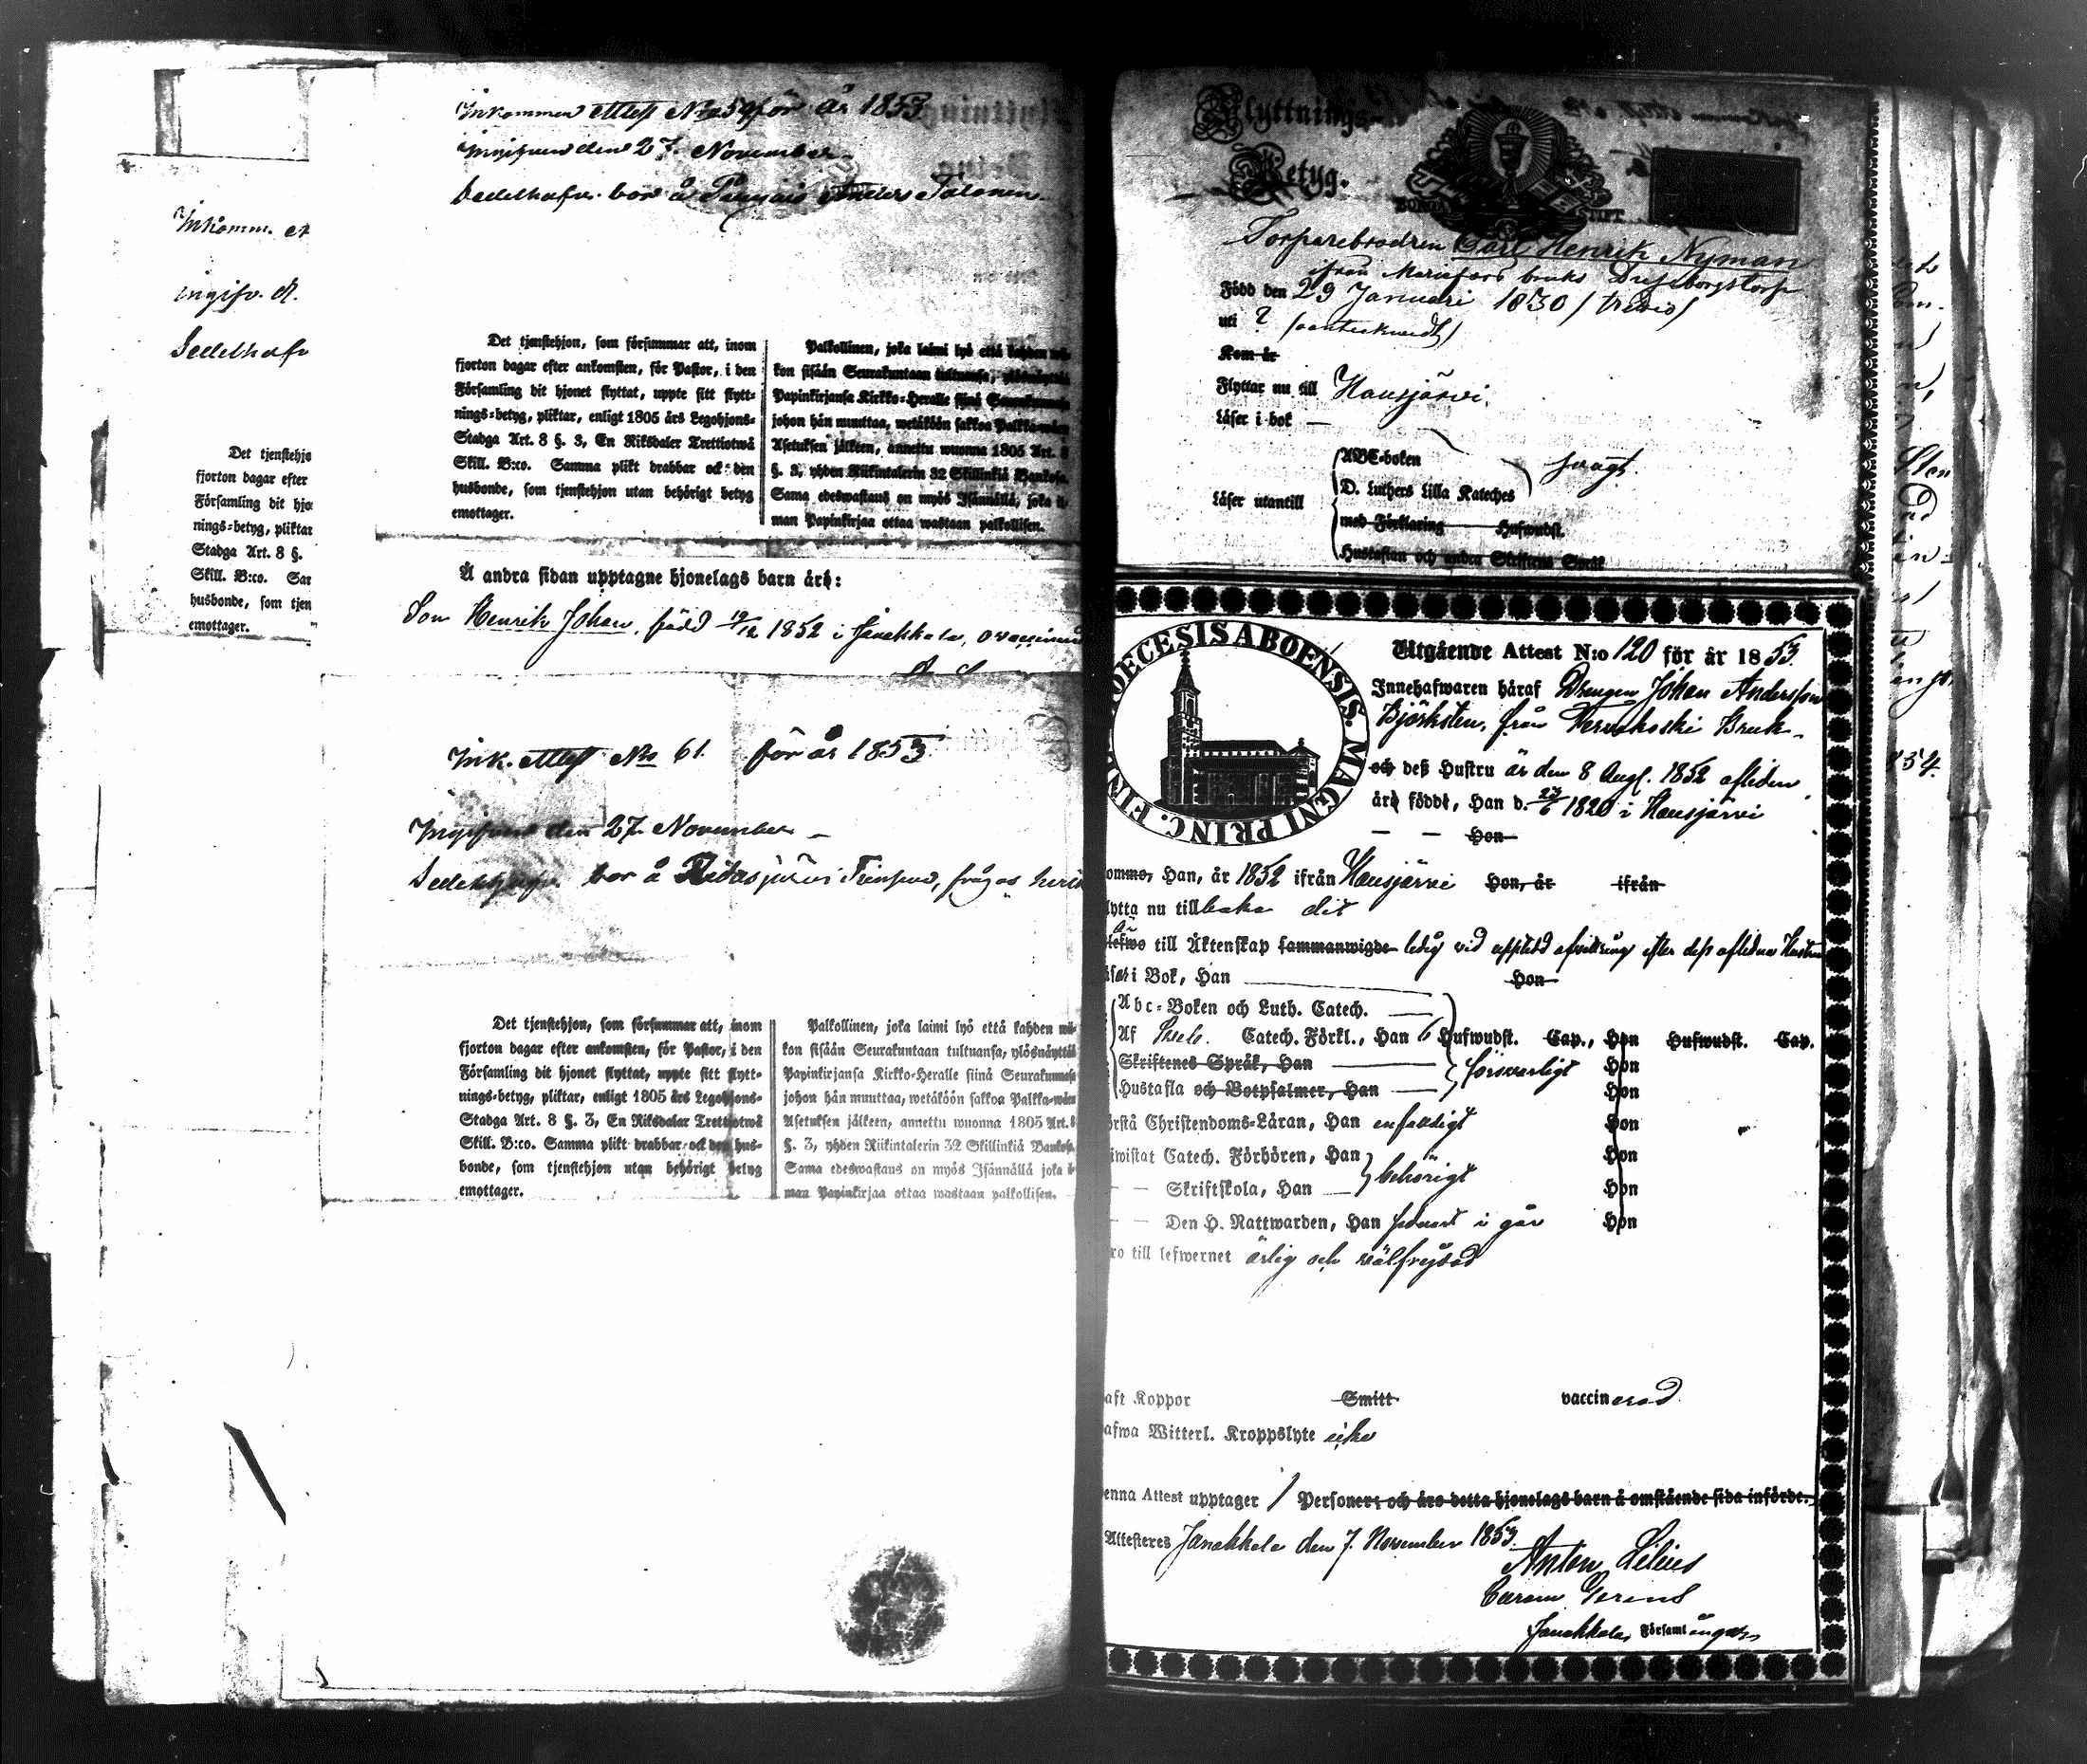 Inkomm. at
ingifv. d.
Sedelhafv
Det tjenstehjo
fjorton dagar efter
Församling dit hjo
nings-betyg, pliktar
Stadga Art. 8 §.
Skill. B:co. Sar
husbonde, som tjen
emottager.
Inkommen attest No 59 för år 1853
Ingifven den 27. November.
Sedelhafv. bor å Anders Talonen.
Det tjenstehjon, som försummar att, inom
fjorton dagar efter ankomsten, för Pastor, i den
Församling dit hjonet flyttat, uppte sitt flytt-
nings-betyg, pliktar, enligt 1805 års Legohjons-
Stadga Art. 8 §. 3, En Riksdaler Trettiotwå
Skill. B:co. Samma plikt drabbar ock den
husbonde, som tjenstehjon utan behörigt betyg
emottager.
Palkollinen, joka laimi lyö että kahden wii-
kon sisään Seurakuntaan tultuansa, ylösnäyttää
Papinkirjansa Kirkko-Heralle siinä Seurakunnassa
johon hän muuttaa, wetäköön sakkoa Palkka-wäen
Asetuksen jälkeen, annettu wuonna 1805 Art. 8
§. 3, yhden Riikintalerin 32 Skillinkiä Bankosa.
Sama edeswastaus on myös Isännällä, joka il-
man Papinkirjaa ottaa wastaan palkollisen.
Å andra sidan upptagne hjonelags barn äro:
Son Henrik Johan, född 19/12 1852 i Janakkala, ovaccinerad
Ink. attest No 61. för år 1853
Ingifven den 27. November
bor å frågas
Det tjenstehjon, som försummar att, inom
fjorton dagar efter ankomsten, för Pastor, i den
Församling dit hjonet flyttat, uppte sitt flytt-
nings-betyg, pliktar, enligt 1805 års Legohjons-
Stadga Art. 8 §. 3, En Riksdalar Trettiotwå
Skill. B:co. Samma plikt drabbar ock den hus-
bonde, som tjenstehjon utan behörigt betyg
emottager.
Palkollinen, joka laimi lyö että kahden wii-
kon sisään Seurakuntaan tultuansa, ylösnäyttää
Papinkirjansa Kirkko-Heralle siinä Seurakunnasa
johon hän muuttaa, wetäköön sakkoa Palkka-wäen
Asetuksen jälkeen, annettu wuonna 1805 Art. 8
§. 3, yhden Riikintalerin 32 Skillinkiä Bankosa.
Sama edeswastaus on myös Isännällä joka il-
man Papinkirjaa ottaa wastaan palkollisen.
Flyttnings-
Betyg.
BORGÅ STIFT
Torparebrodren Carl Henrik Nyman
ifrån Mariefors bruks
Född den 29 Januari 1830
uti ? (oantecknadt)
Kom år
Flyttar nu till Hausjärvi.
Läser i bok —
Läser utantill
ABC-boken
D. Luthers Lilla Kateches
svagt.
med Förklaring Hufwudst.
Hustaflan och andra Skriftens Språk
DIOECESIS ABOENSIS. MAGNI PRINC. FIN
Utgående Attest N:o 120 för år 1853.
Innehafwaren häraf Drengen Johan Andersson
Björksten, från Tervakoski Bruk.
och deß Hustru är den 8 Aug. 1852 afliden
äro födde, Han d. 23/6 1820 i Hausjärvi
— — Hon
omme, Han, år 1852 ifrån Hausjärvi Hon, år ifrån
lytta nu tillbaka dit
är
lefwo till Äktenskap sammanwigde ledig vid upptedd afvittring efter dess aflidna Hustru
äser i Bok, Han Hon
Abc-Boken och Luth. Catech.
Af Sveb. Catech. Förkl., Han 6 Hufwudst. Cap., Hon Hufwudst. Cap.
Skriftenes Språk, Han försvarligt Hon
Hustafla och Botpsalmer, Han Hon
örstå Christendoms-Läran, Han enfaldigt Hon
iwistat Catech. Förhören, Han behörigt Hon
— — Skriftskola, Han Hon
— — Den H. Nattwarden, Han senast i går Hon
ro till lefwernet ärlig och välfrejdad
aft Koppor Smitt vaccinerad
afwa Witterl. Kroppslyte icke
enna Attest upptager 1 Personer: och äro detta hjonelags barn å omstående sida införde.
Attesteres Janakkala den 7. November 1853.
Anton Lilius
Janakkala Församlingar